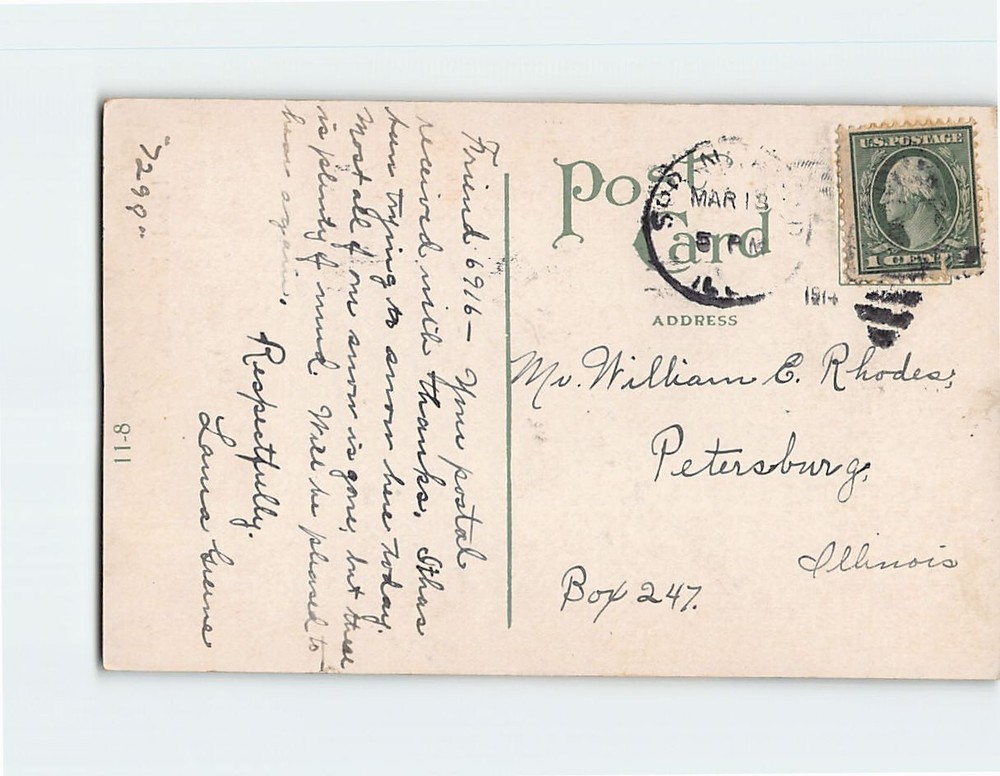 Friend 6916 — Your postal
received with thanks. It has
been trying to snow here today.
Most all of our snow is gone, but there
is plenty of mud. Will be pleased to
hear again.
Respectfully.
Laura Greene
"7298"
11-8
Post
Card
ADDRESS
SODUS
MAR 13
5 PM
1914
U.S. POSTAGE
1 CENT 1
Mr. William E. Rhodes,
Petersburg,
Illinois
Box 247.